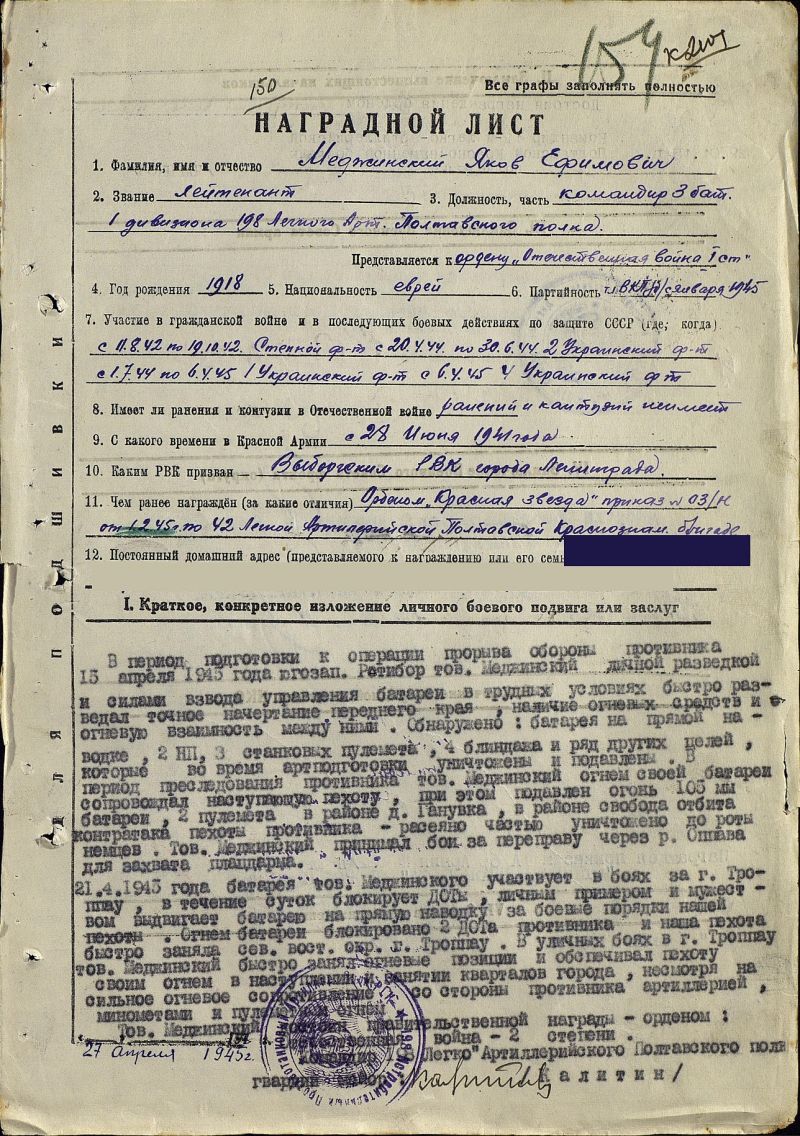 154
150
Все графы заполнять полностью
НАГРАДНОЙ ЛИСТ
1. Фамилия, имя и отчество Меджинский Яков Ефимович
2. Звание лейтенант 3. Должность, часть командир 3 бат.
1 дивизиона 198 Легкого Арт. Полтавского полка.
Представляется к ордену „Отечественная война I ст"
4. Год рождения 1918 5. Национальность еврей 6. Партийность января 1945
7. Участие в гражданской войне и в последующих боевых действиях по защите СССР (где, когда)
с 11.8.42 по 19.10.42. Степной ф-т с 20.4.44 по 30.6.44 2 Украинский ф-т
с 1.7.44 по 6.4.45 1 Украинский ф-т с 6.4.45 4 Украинский ф-т
8. Имеет ли ранения и контузии в Отечественной войне ранений и контузий не имеет
9. С какого времени в Красной Армии с 28 Июня 1941 года
10. Каким РВК призван Выборгским РВК города Ленинграда.
11. Чем ранее награждён (за какие отличия) Орденом „Красная звезда" приказ № 03/н
от 1.2.45г. по 42 Легкой Артиллерийской Полтавской Краснознам. бригаде
12. Постоянный домашний адрес (представляемого к награждению или его семьи
I. Краткое, конкретное изложение личного боевого подвига или заслуг
Для подшивки
В период подготовки к операции прорыва обороны противника
15 апреля 1945 года югозап. Ратибор тов. Меджинский личной разведкой
и силами взвода управления батареи в трудных условиях быстро раз-
ведал точное начертание переднего края , наличие огневых средств и
огневую взаимность между ними . Обнаружено : батарея на прямой на-
водке , 2 НП, 3 станковых пулемета , 4 блиндажа и ряд других целей ,
которые во время артподготовки уничтожены и подавлены . В
период преследования противника тов. Меджинский огнем своей батареи
сопровождал наступающую пехоту , при этом подавлен огонь 105 мм
батареи , 2 пулемета в районе д. Ганувка , в районе свобода отбита
контратака пехоты противника - расеяно частью уничтожено до роты
немцев . Тов. Меджинский принимал бои за переправу через р. Оппава
для захвата плацдарма.
21.4.1945 года батарея тов. Меджинского участвует в боях за г. Тро-
ппау , в течение суток блокирует ДОТы , личным примером и мужест -
вом выдвигает батарею на прямую наводку за боевые порядки нашей
пехоты . Огнем батареи блокировано 2 ДОТа противника и наша пехота
быстро заняла сев. вост. окр. г. Троппау . В уличных боях в г. Троппау
тов. Меджинский быстро занял огневые позиции и обеспечивал пехоту
своим огнем в наступлении и занятии кварталов города , несмотря на
сильное огневое сопротивление со стороны противника артиллерией ,
минометами и пулеметным огнем
Тов. Меджинский достоин правительственной награды - орденом :
Отечественная война - 2 степени .
27 апреля 1945 г. Командир Легко Артиллерийского Полтавского полк
гвардии майор Калитин/